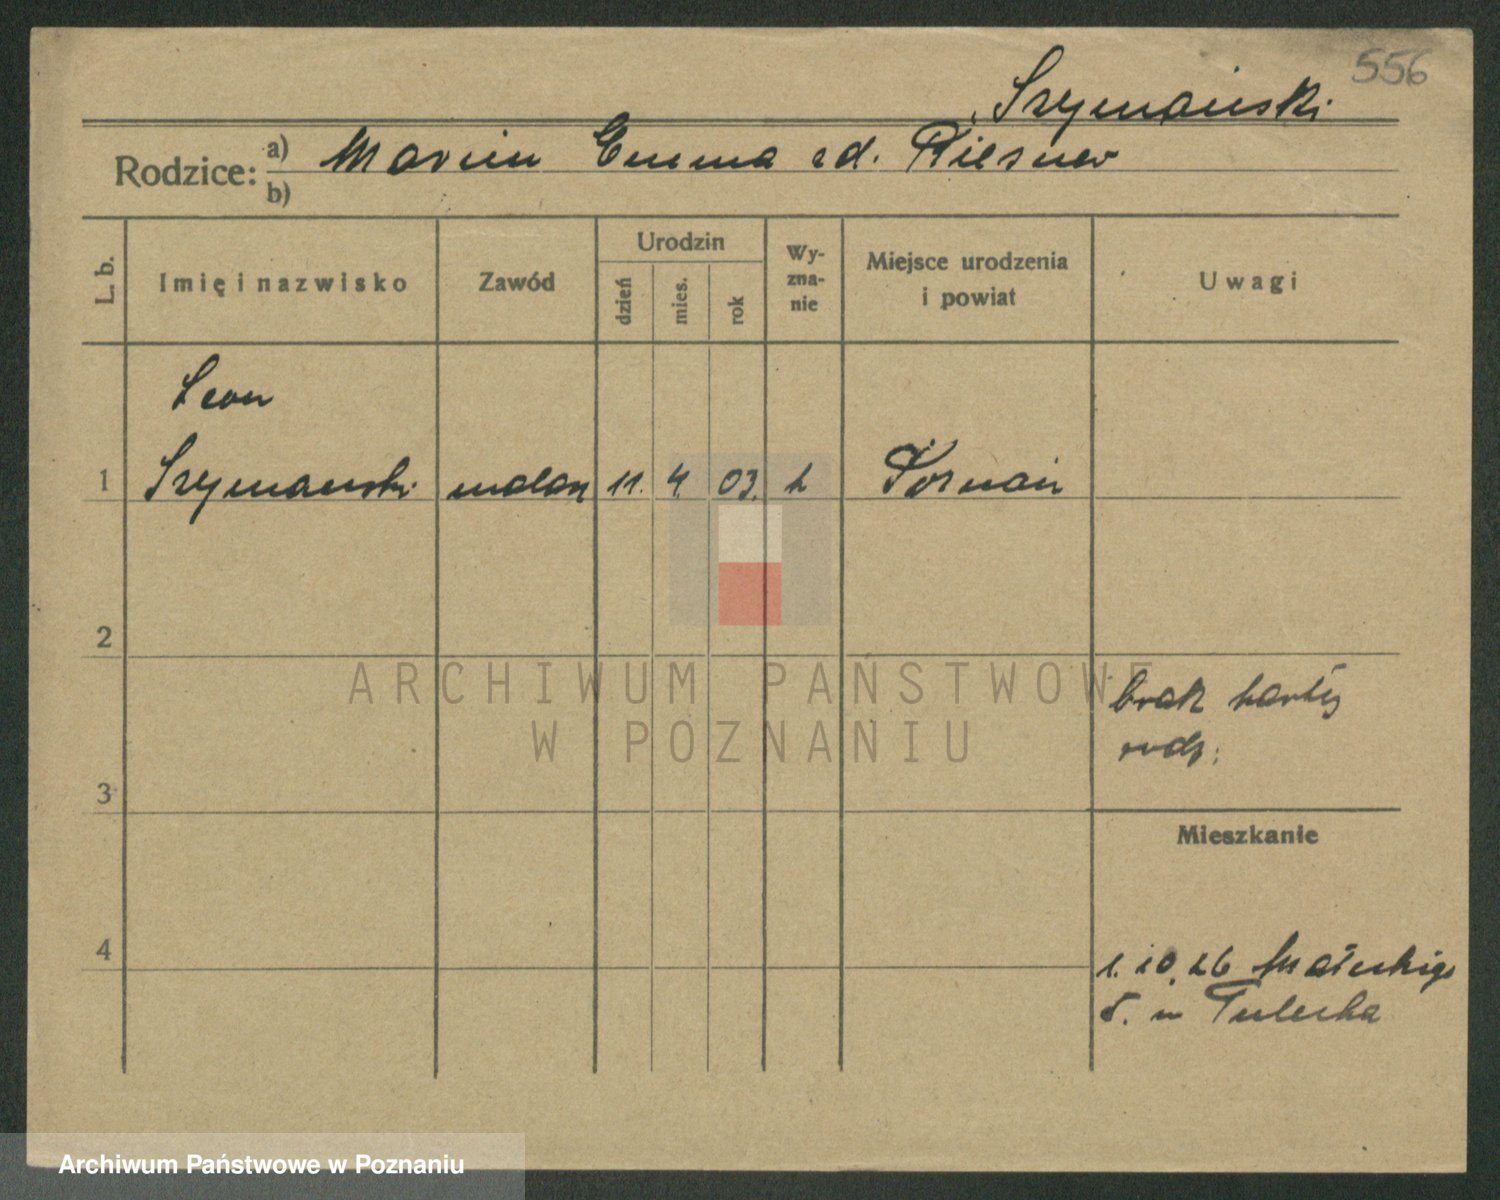 556
Szymański
Rodzice: a) Marcin Emma zd. Kiesner
b)
L. b. Imię i nazwisko Zawód Urodzin dzień mies. rok Wyznanie Miejsce urodzenia i powiat Uwagi
Leon
1 Szymański malarz 11. 4. 03. k Poznań
2
ARCHIWUM PAŃSTWOWE
W POZNANIU
brak karty
rodz.
3
Mieszkanie
4
1. 10. 26 Małeckiego
5. u
Archiwum Państwowe w Poznaniu